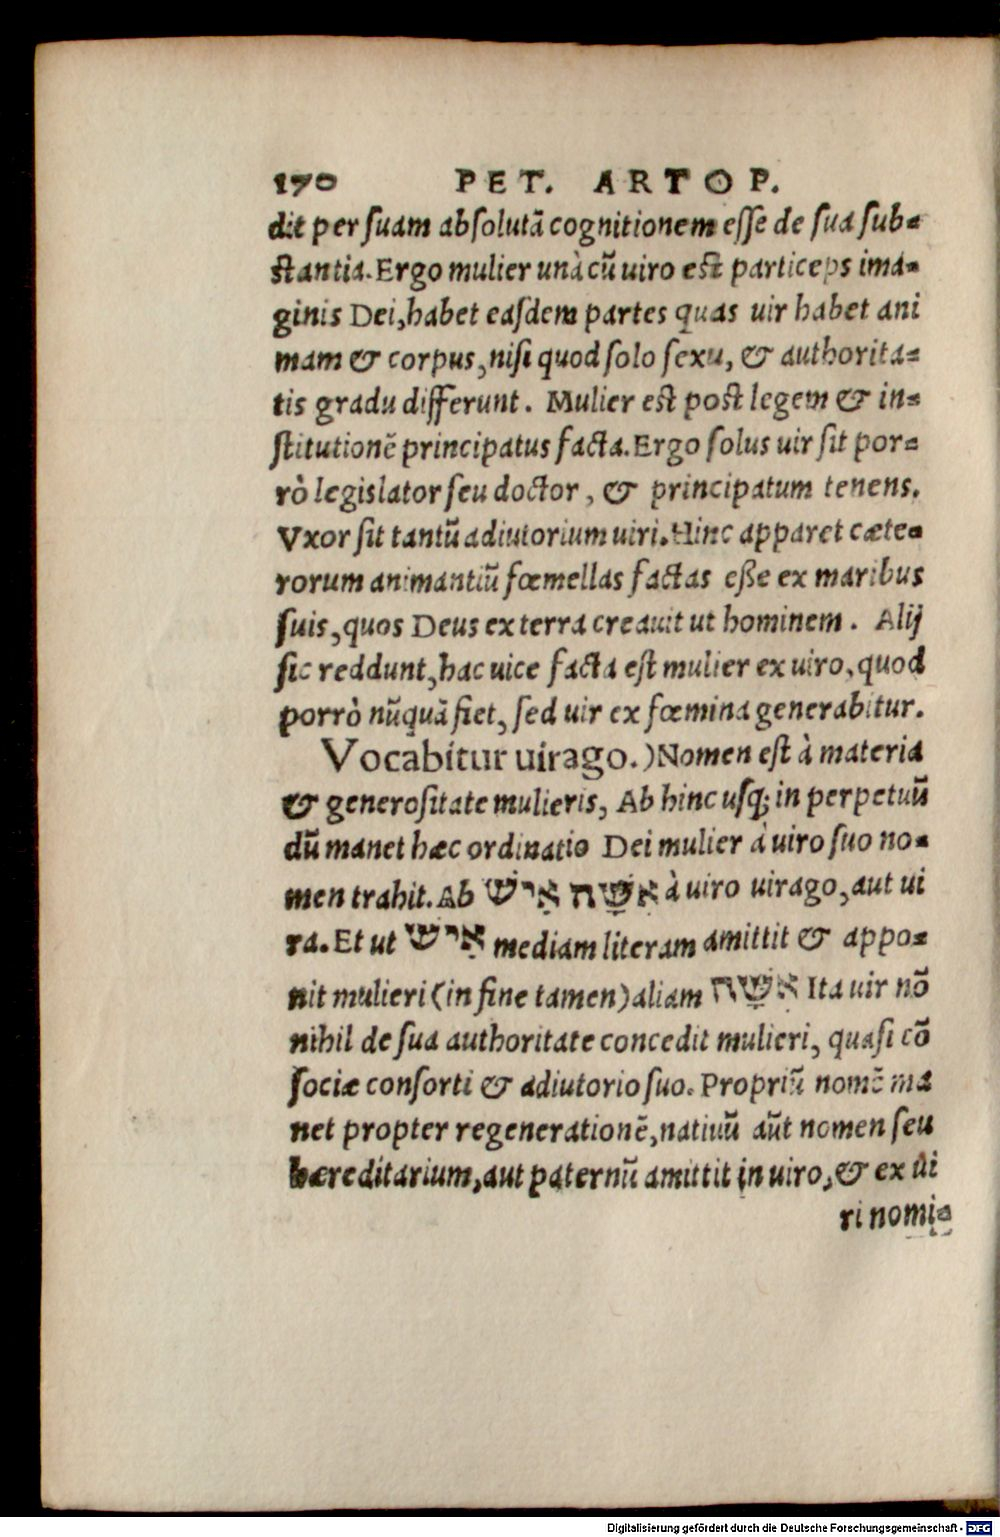 170 PET. ARTOP.
dit per suam absolutã cognitionem esse de sua sub-
stantia. Ergo mulier unà cũ uiro est particeps ima-
ginis Dei, habet easdem partes quas uir habet ani
mam & corpus, nisi quod solo sexu, & authorita-
tis gradu differunt. Mulier est post legem & in-
stitutionẽ principatus facta. Ergo solus uir sit por-
rò legislator seu doctor, & principatum tenens.
Vxor sit tantũ adiutorium uiri. Hinc apparet cæte-
rorum animantiũ fœmellas factas eße ex maribus
suis, quos Deus ex terra creauit ut hominem. Alij
sic reddunt, hac uice facta est mulier ex uiro, quod
porrò nũquã fiet, sed uir ex fœmina generabitur.
Vocabitur uirago.) Nomen est à materia
& generositate mulieris, Ab hinc usq; in perpetuũ
dũ manet hæc ordinatio Dei mulier à uiro suo no-
men trahit. Ab אִישׁ אִשָּׁה à uiro uirago, aut ui
ra. Et ut אִישׁ mediam literam amittit & appo-
nit mulieri (in fine tamen) aliam אִשָּׁה Ita uir nõ
nihil de sua authoritate concedit mulieri, quasi cõ
sociæ consorti & adiutorio suo. Propriũ nomẽ ma
net propter regenerationẽ, natiuũ aũt nomen seu
hæreditarium, aut paternũ amittit in uiro, & ex ui
ri nomi-
Digitalisierung gefördert durch die Deutsche Forschungsgemeinschaft - DFG